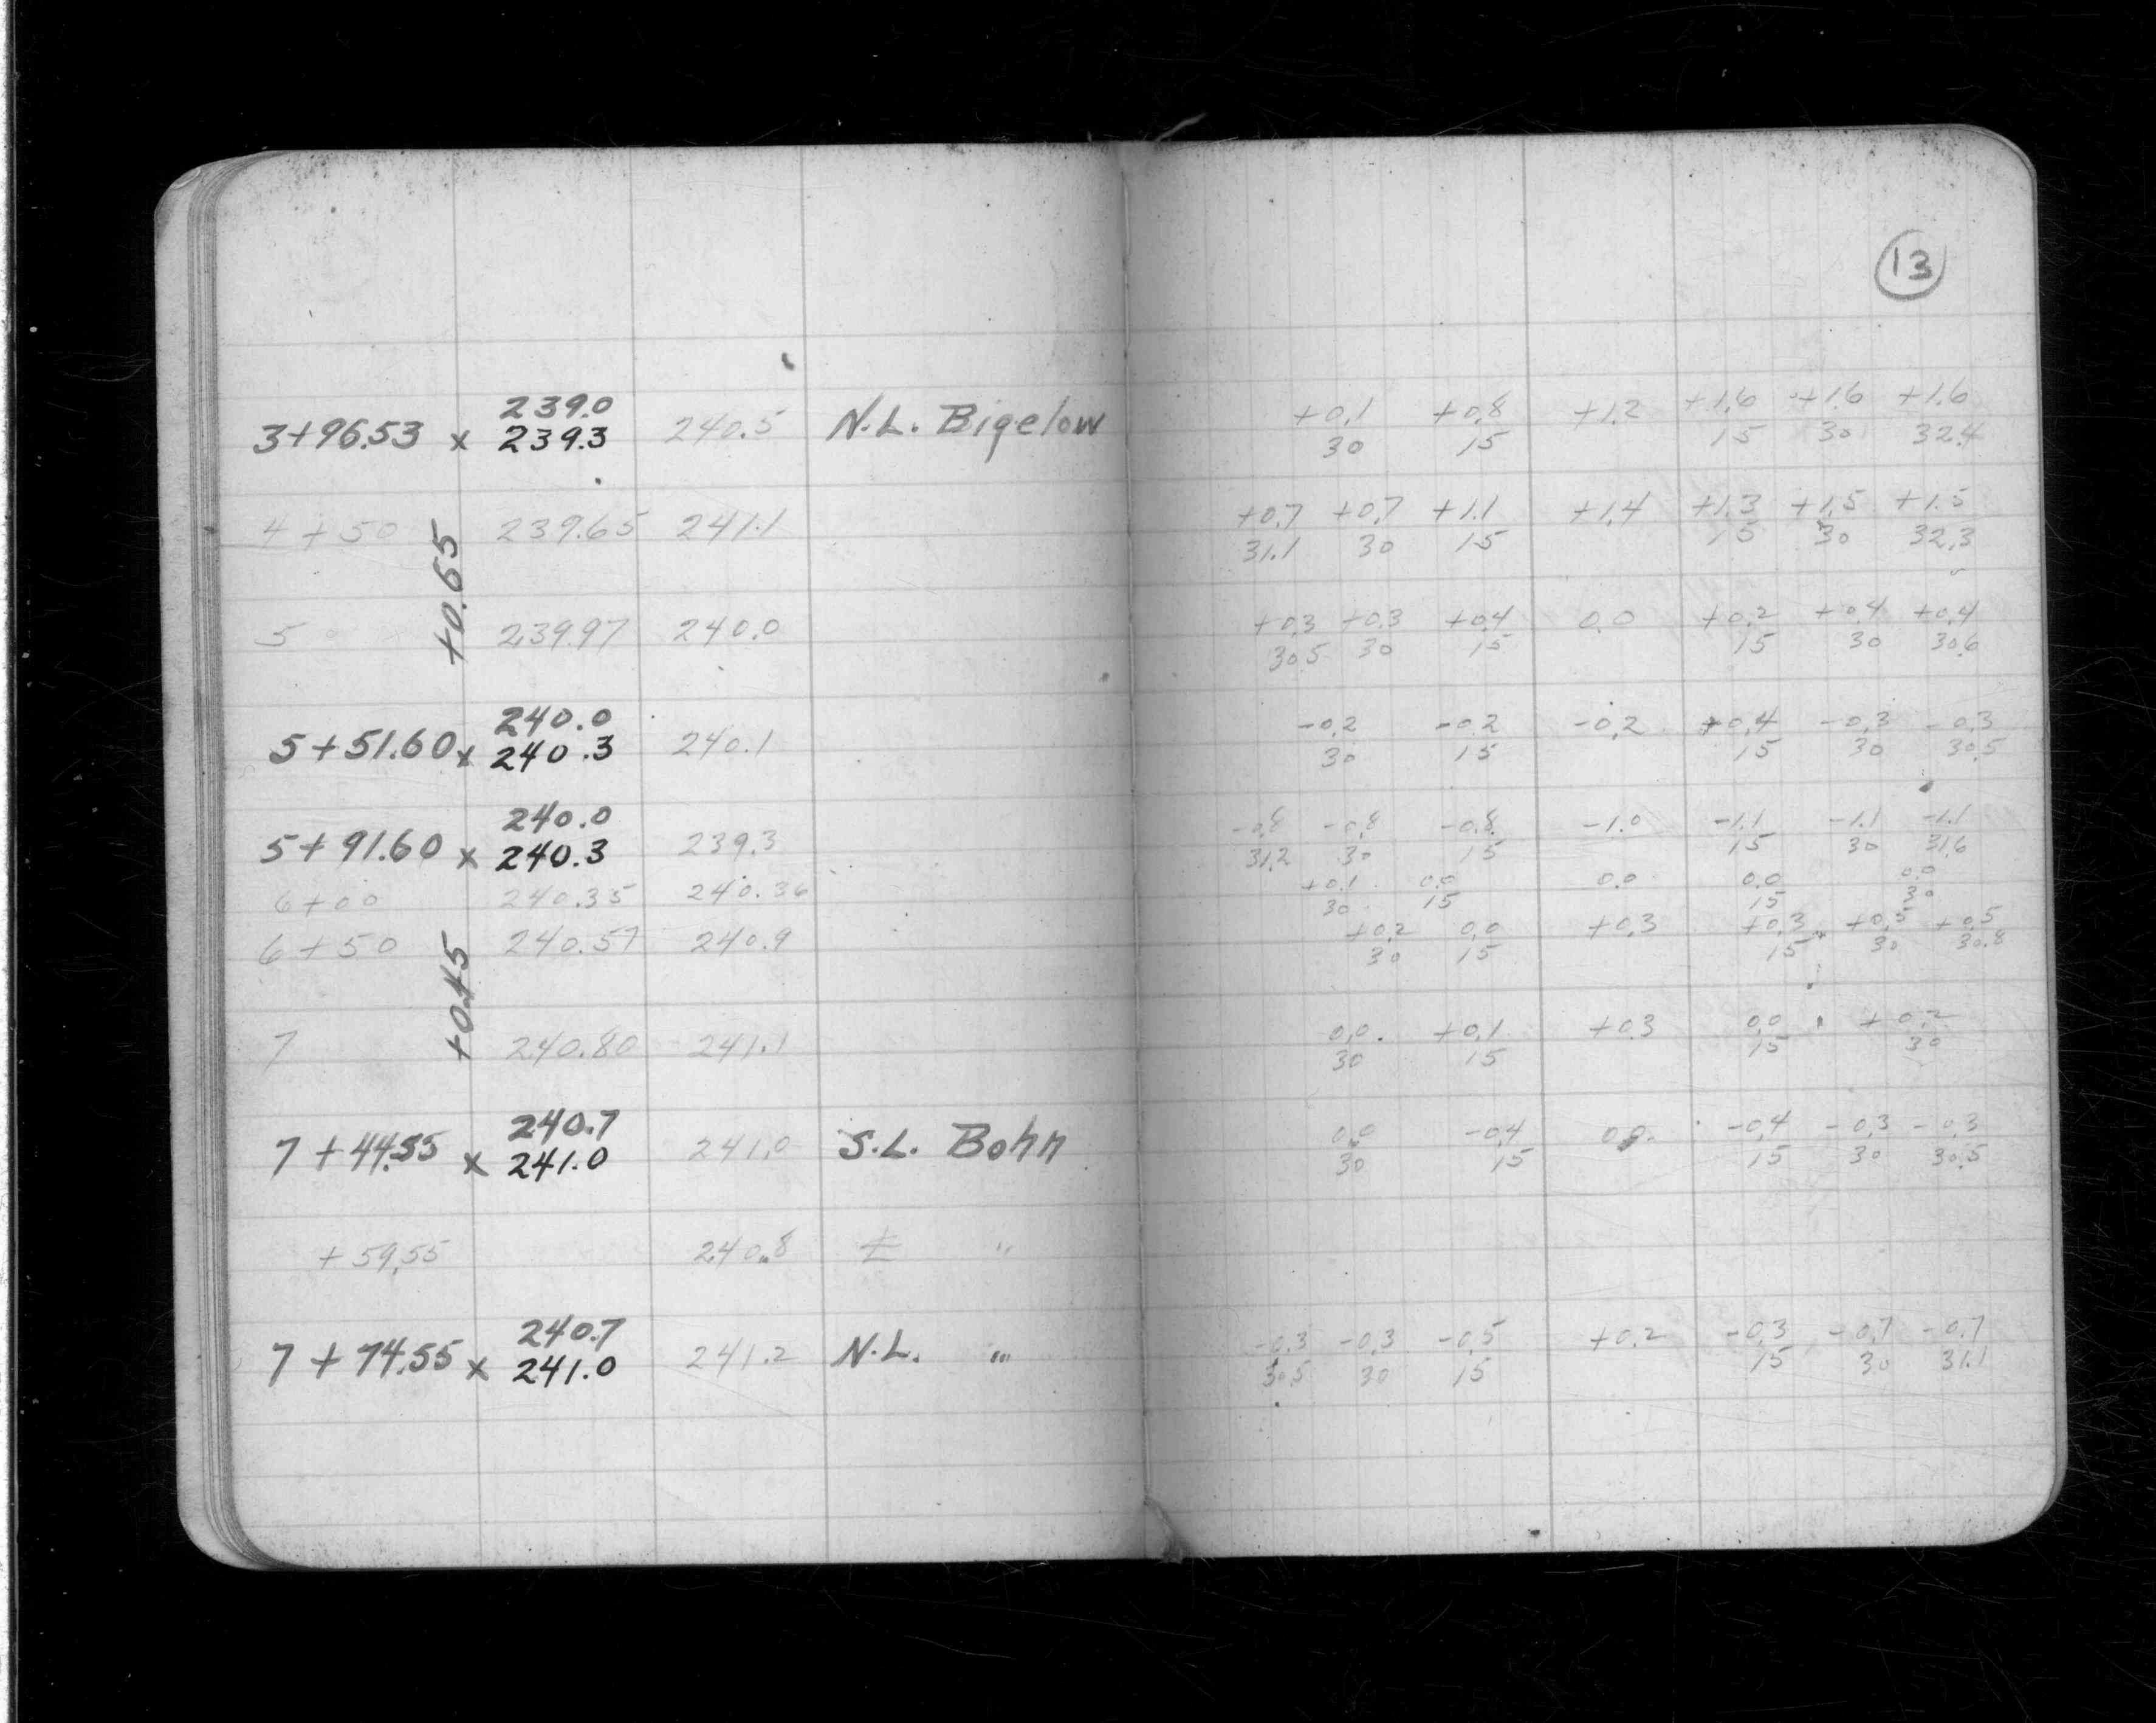 13
239.0
3+96.53 x 239.3 240.5 N.L. Bigelow +0.1 +0.8 +1.2 +1.6 +1.6 +1.6
30 15 15 30 32.4
4+50 239.65 241.1 +0.7 +0.7 +1.1 +1.4 +1.3 +1.5 +1.5
31.1 30 15 15 30 32.3
+0.65
5 239.97 240.0 +0.3 +0.3 +0.4 0.0 +0.2 +0.4 +0.4
30.5 30 15 15 30 30.6
240.0
5+51.60 x 240.3 240.1 -0.2 -0.2 -0.2 +0.4 -0.3 -0.3
30 15 15 30 30.5
240.0
5+91.60 x 240.3 239.3 -0.8 -0.8 -0.8 -1.0 -1.1 -1.1 -1.1
31.2 30 15 15 30 31.6
6+00 240.35 240.36 +0.1 0.0 0.0 0.0 0.0
30 15 15 30
6+50 240.57 240.9 +0.2 0.0 +0.3 +0.3 +0.5 +0.5
30 15 15 30 30.8
+0.45
7 240.80 241.1 0.0 +0.1 +0.3 0.0 +0.2
30 15 15 30
240.7
7+44.55 x 241.0 241.0 S.L. Bohn 0.0 -0.4 0.0 -0.4 -0.3 -0.3
30 15 15 30 30.5
+59.55 240.8 ℄ "
240.7
7+74.55 x 241.0 241.2 N.L. " -0.3 -0.3 -0.5 +0.2 -0.3 -0.7 -0.7
30.5 30 15 15 30 31.1